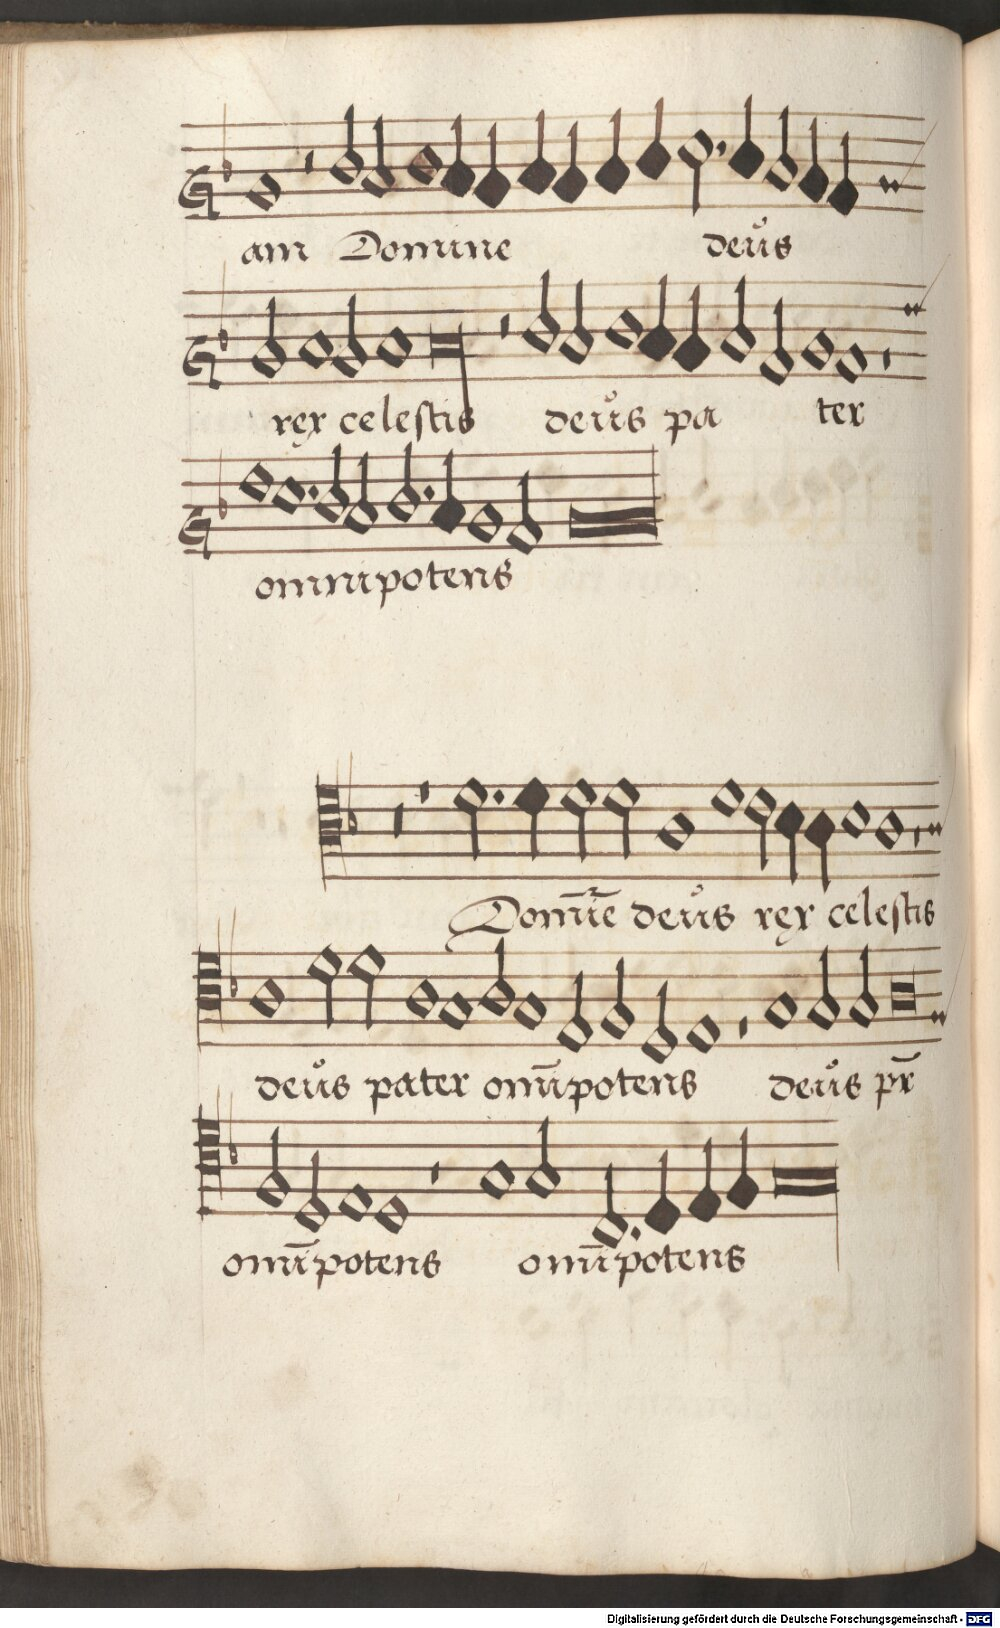 am Domine deus
rex celestis deus pa ter
omnipotens
Domīe deus rex celestis
deus pater omīpotens deus pr̄
omīpotens omīpotens
Digitalisierung gefördert durch die Deutsche Forschungsgemeinschaft - DFG